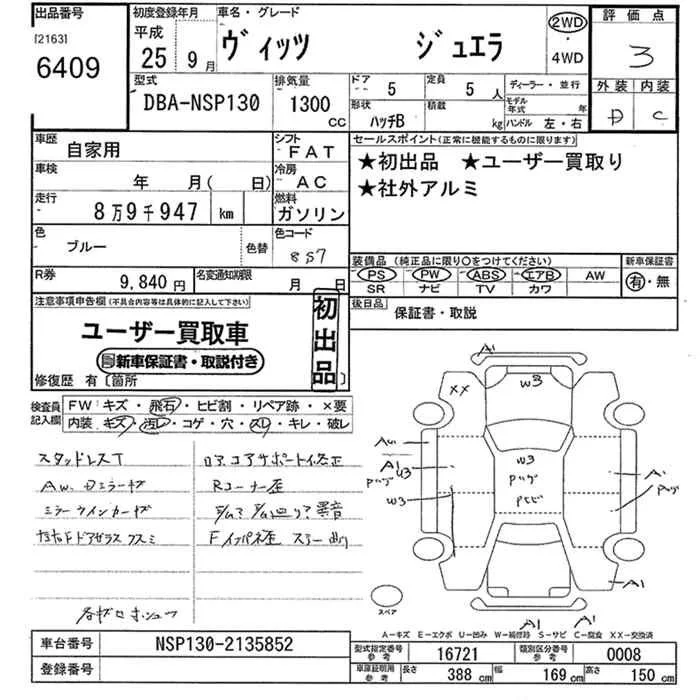 出品番号
[2163]
6409
初度登録年月
平成
25年 9月
車名・グレード
ヴィッツ ジュエラ
2WD
・
4WD
評価点
3
外装 内装
D C
型式
DBA-NSP130
排気量
1300
CC
ドア 5
定員 5人
形状 ハッチB
積載 kg
ディーラー・並行
モデル年式 年
ハンドル 左・右
車歴
自家用
シフト
FAT
車検
年 月( 日)
冷房
AC
走行
8万9千947 km
燃料
ガソリン
色
ブルー
色替
色コード
8S7
R券
9,840円
名変通知期限
月 日
セールスポイント(正常に機能するものに限ります)
★初出品 ★ユーザー買取り
★社外アルミ
装備品 (純正品に限り○をつけてください)
PS PW ABS エアB AW
SR ナビ TV カワ
新車保証書
有・無
後日品
保証書・取説
注意事項申告欄(不具合内容等は具体的に記入して下さい)
ユーザー買取車
新車保証書・取説付き
初出品
修復歴 有〔箇所 〕
検査員記入欄
FW:キズ・飛石・ヒビ割・リペア跡・×要
内装:キズ・汚レ・コゲ・穴・スレ・キレ・破レ
スタッドレスT
Aw. Dミラーキズ
ミラーウインカーキズ
FドアガラスウスミI
ロアコアサポート修正
Rコーナー歪
異音
A1
XX
W3
Aw
A1
W3
A1
A1
A1
A1
スペア
A―キズ E―エクボ U―凹み W―補修跡 S―サビ C―腐食 XX―交換済
車台番号
NSP130-2135852
登録番号
型式指定番号 参考
16721
類別区分番号 参考
0008
車庫証明用 参考
長さ 388 cm
幅 169 cm
高さ 150 cm